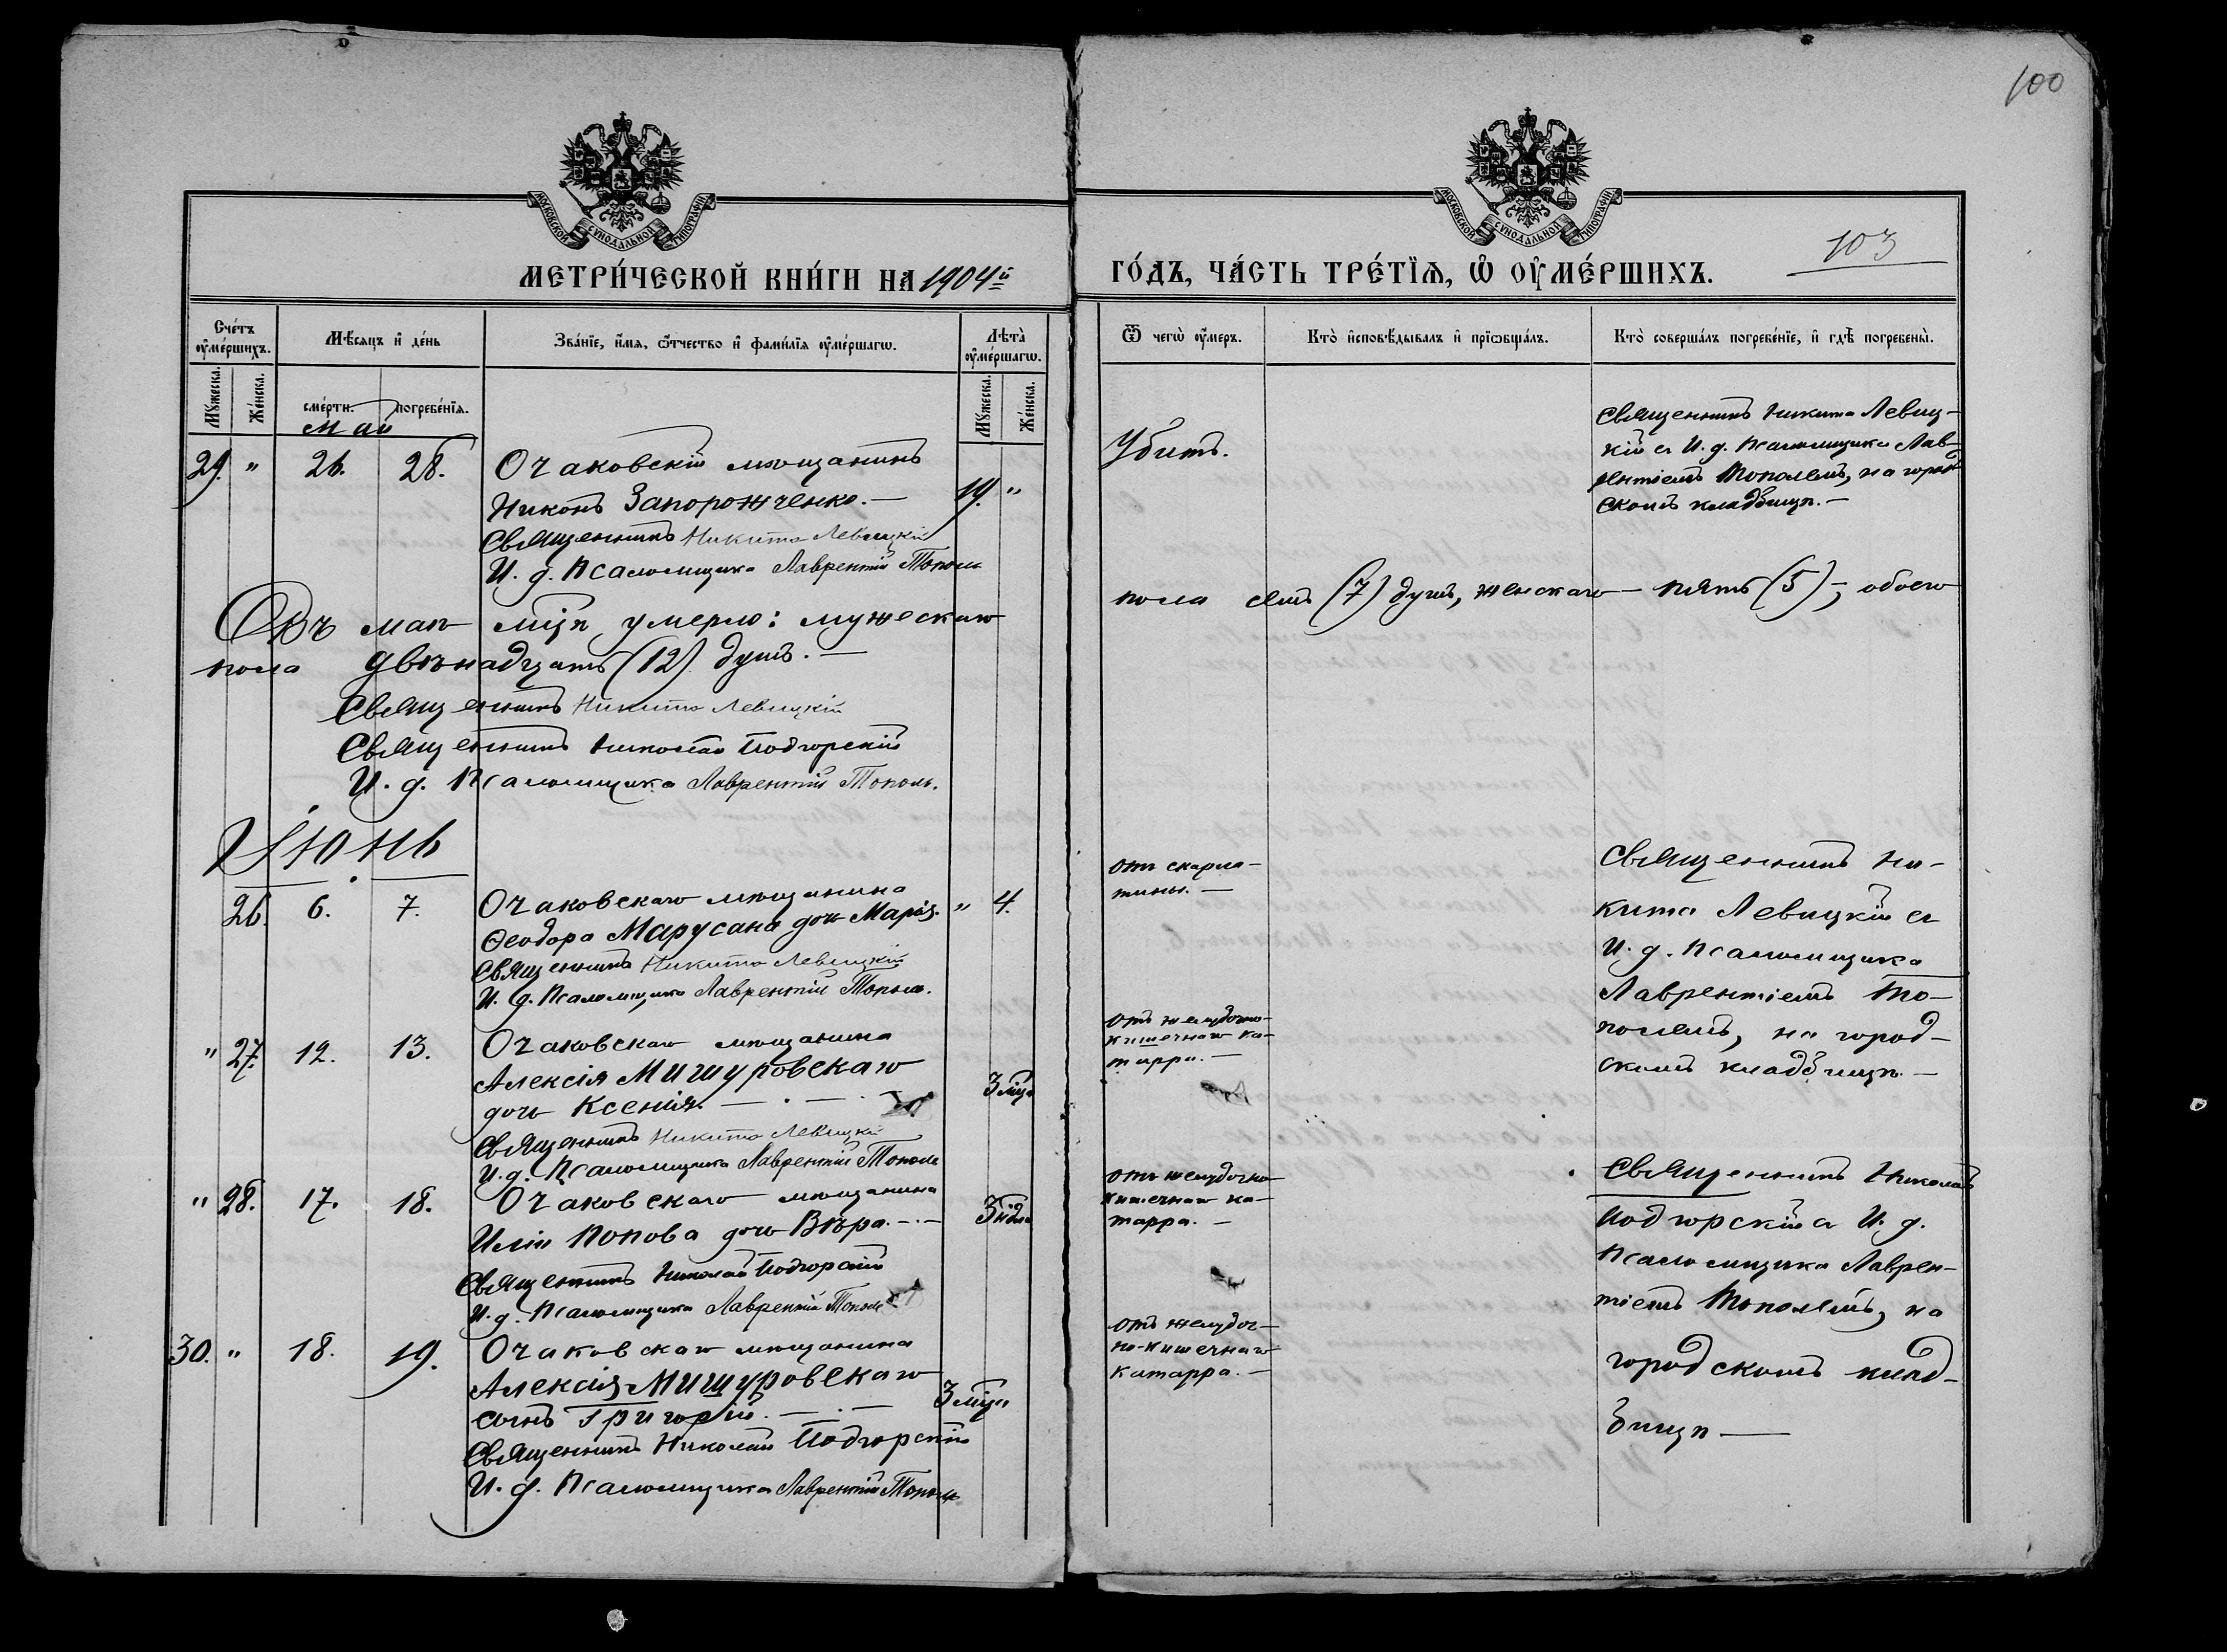 100
МОСКОВСКОЙ СѴНОДАЛЬНОЙ ТИПОГРАФІИ.
МОСКОВСКОЙ СѴНОДАЛЬНОЙ ТИПОГРАФІИ.
103
МЕТРИ́ЧЕСКОЙ КНИ́ГИ НА 1904й
ГО́ДЪ, ЧА́СТЬ ТРЕ́ТЇѦ, Ѡ҆ ОУ҆МЕ́РШИХЪ.
Сче́тъ
оу҆ме́ршихъ.
Мꙋ́жеска.
Же́нска.
Мѣ́сѧцъ и҆ де́нь
сме́рти.
погребе́нїѧ.
Зва́нїе, и҆́мѧ, ѻ҆́тчество и҆ фами́лїѧ оу҆ме́ршагѡ.
Лѣ́та
оу҆ме́ршагѡ.
Мꙋ́жеска.
Же́нска.
Ѿ чегѡ̀ оу҆́меръ.
Кто̀ и҆сповѣ́дывалъ и҆ прїѡбща́лъ.
Кто̀ соверша́лъ погребе́нїе, и҆ гдѣ̀ погребены̀.
Май
29. " 26. 28. Очаковскій мѣщанинъ
Никонъ Запорожченко.— 19. "
Священникъ Никита Левицкій
И. д. Псаломщика Лаврентій Тополь
Убитъ.
Священникъ Никита Левиц-
кій съ И. д. Псаломщика Лав-
рентіемъ Тополемъ, на город-
скомъ кладбищѣ.—
Въ маѣ мцѣ умерло: мужескаго
пола семь (7) душъ, женскаго — пять (5); обоего
пола двѣнадцать (12) душъ.—
Священникъ Никита Левицкій
Священникъ Николай Подгорскій
И. д. Псаломщика Лаврентій Тополь.
Іюнь
26. 6. 7. Очаковскаго мѣщанина
Ѳеодора Марусана дочь Марія. " 4.
Священникъ Никита Левицкій
И. д. Псаломщика Лаврентій Тополь.
отъ скарла-
тины.—
Священникъ Ни-
кита Левицкій съ
И. д. Псаломщика
Лаврентіемъ То-
полемъ, на город-
скомъ кладбищѣ.—
" 27. 12. 13. Очаковскаго мѣщанина
Алексія Мишуровскаго
дочь Ксенія. 3 мца
Священникъ Никита Левицкій
И. д. Псаломщика Лаврентій Тополь
отъ желудочно-
кишечнаго ка-
тарра.—
" 28. 17. 18. Очаковскаго мѣщанина
Иліи Попова дочь Вѣра.— 3 нед
Священникъ Николай Подгорскій
И. д. Псаломщика Лаврентій Тополь
отъ желудочно-
кишечнаго ка-
тарра.—
Священникъ Николай
Подгорскій съ И. д.
Псаломщика Лаврен-
тіемъ Тополемъ, на
городскомъ клад-
бищѣ —
30. " 18. 19. Очаковскаго мѣщанина
Алексія Мишуровскаго
сынъ Григорій.— 3 мца
Священникъ Николай Подгорскій
И. д. Псаломщика Лаврентій Тополь
отъ желудоч-
но-кишечнаго
катарра.—